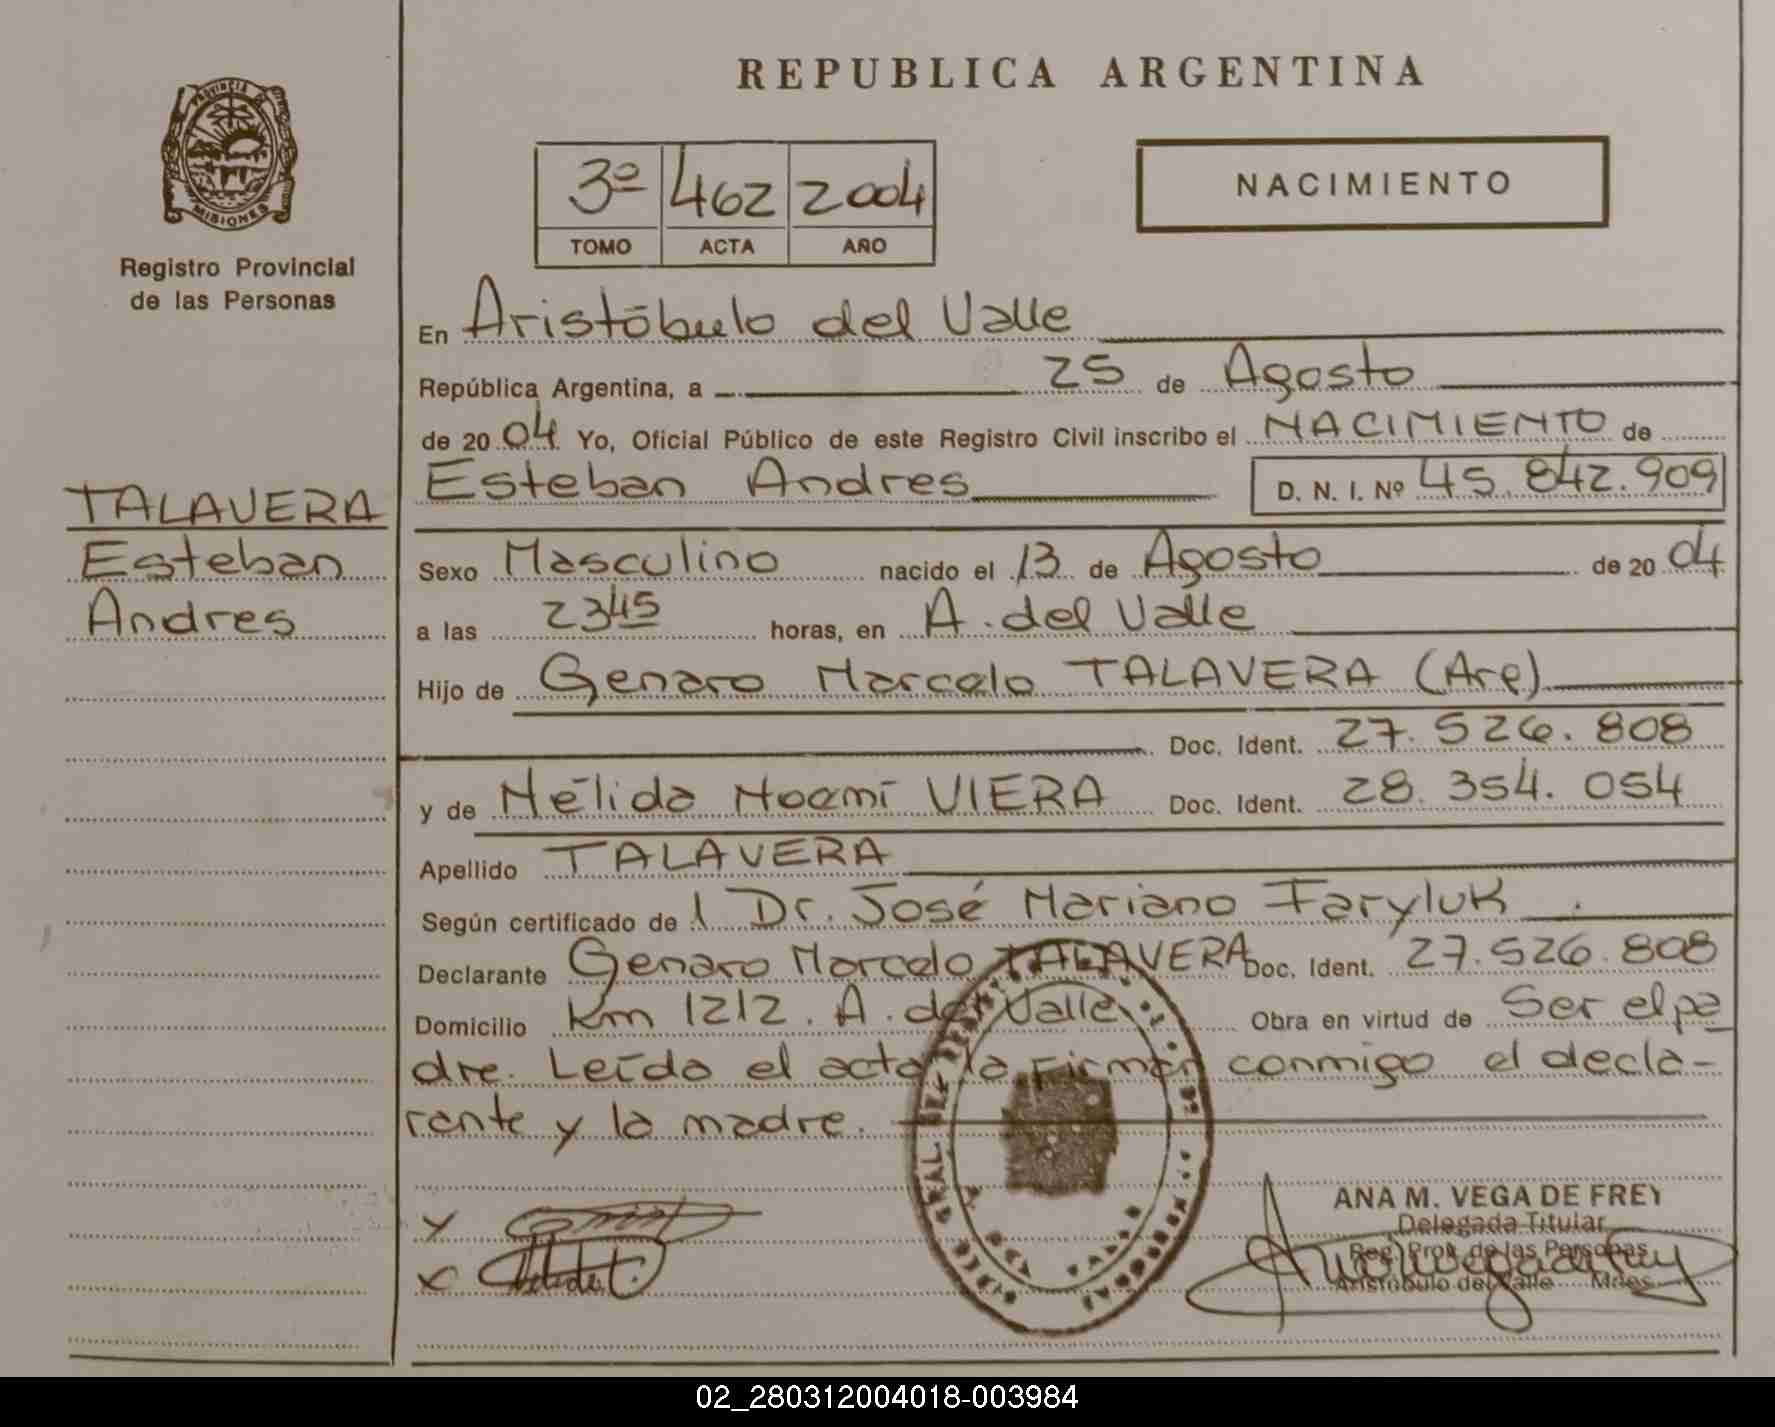 REPUBLICA ARGENTINA
PROVINCIA DE
MISIONES
Registro Provincial
de las Personas
3º 462 2004
TOMO ACTA AÑO
NACIMIENTO
En Aristóbulo del Valle
República Argentina, a 25 de Agosto
de 20 04 Yo, Oficial Público de este Registro Civil inscribo el NACIMIENTO de
Esteban Andres D. N. I. Nº 45.842.909
TALAVERA
Esteban
Andres
Sexo Masculino nacido el 13 de Agosto de 20 04
a las 2345 horas, en A. del Valle
Hijo de Genaro Marcelo TALAVERA (Arg)
Doc. Ident. 27.526.808
y de Nélida Noemí VIERA Doc. Ident. 28.354.054
Apellido TALAVERA
Según certificado de l Dr. José Mariano Faryluk
Declarante Genaro Marcelo TALAVERA Doc. Ident. 27.526.808
Domicilio Km 1212. A. del Valle Obra en virtud de Ser el pa
dre. Leída el acta la firman conmigo el decla-
rante y la madre.
ANA M. VEGA DE FREY
Delegada Titular
Reg. Prov. de las Personas
Aristóbulo del Valle Mnes.
02_280312004018-003984